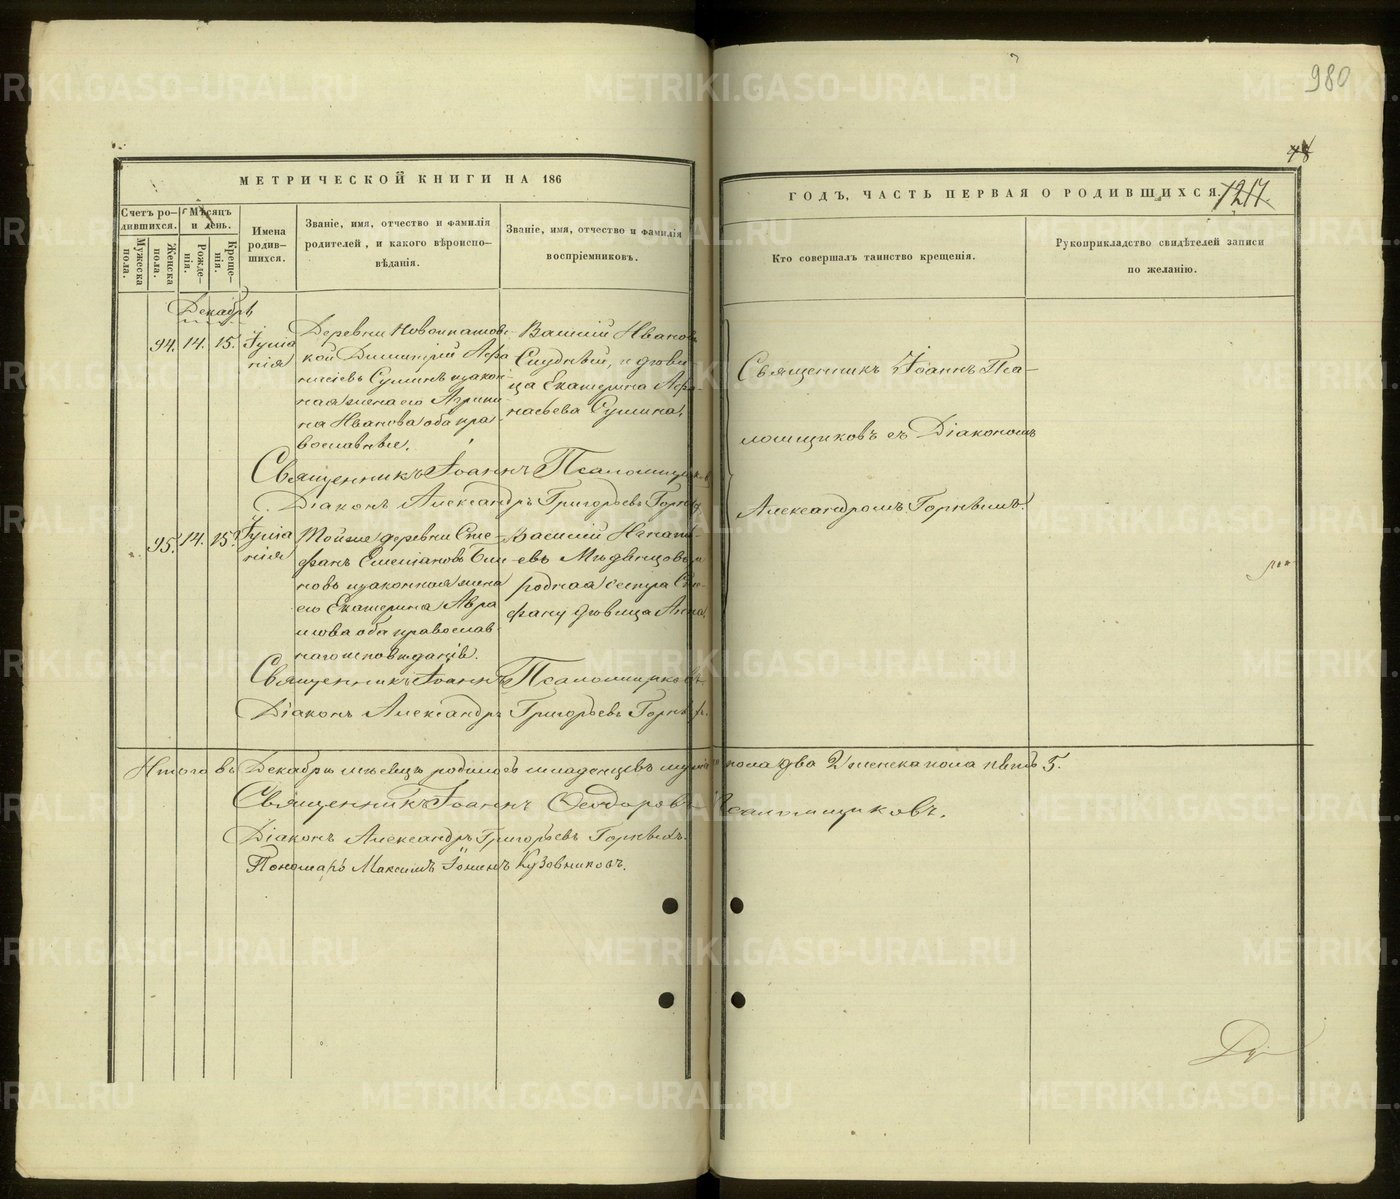 980
48
МЕТРИЧЕСКОЙ КНИГИ НА 186
ГОДЪ, ЧАСТЬ ПЕРВАЯ О РОДИВШИХСЯ.
1217.
Счетъ ро-
дившихся.
Мужеска
пола.
Женска
пола.
Мѣсяцъ
и день.
Рожде-
нія.
Креще-
нія.
Имена
родив-
шихся.
Званіе, имя, отчество и фамилія
родителей, и какого вѣроиспо-
вѣданія.
Званіе, имя, отчество и фамилія
воспріемниковъ.
Кто совершалъ таинство крещенія.
Рукоприкладство свидѣтелей записи
по желанію.
Декабрь
94. 14. 15.
Іуліа
нія
Деревни Новоипатовс-
кой Димитрій Афа
насіевъ Сулинъ и закон
ная жена его Агрипи
на Иванова оба пра
вославные.
Василій Иванов
и дѣви
ца Екатерина Афа-
насьева Сулина.
Священникъ Іоаннъ Пса-
ломщиковъ съ Діакономъ
Александромъ Горныхъ.
Священникъ Іоаннъ Псаломщиковъ
Діаконъ Александръ Григорьевъ Горныхъ
95. 14. 15.
Іуліа
нія
Тойже деревни Сте
фанъ Емеліановъ
новъ и законная жена
его Екатерина Авра
мова оба православ-
наго исповѣданія.
Василій Игнать-
евъ Мѣдвѣдевъ и
родная сестра Сте-
фану дѣвица Анна.
Священникъ Іоаннъ Псаломщиковъ
Діаконъ Александръ Григорьевъ Горныхъ.
Итого въ Декабрѣ мѣсяцѣ родилось младенцевъ мужска пола два 2 женска пола пять 5.
Священникъ Іоаннъ Ѳеодоровъ Псаломщиковъ.
Діаконъ Александръ Григорьевъ Горныхъ.
Пономарь Максимъ Іонинъ Кузовниковъ.
METRIKI.GASO-URAL.RU